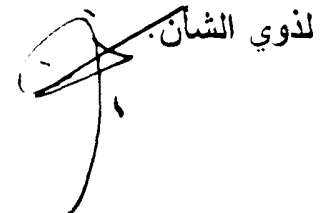 لذوي الشأن.